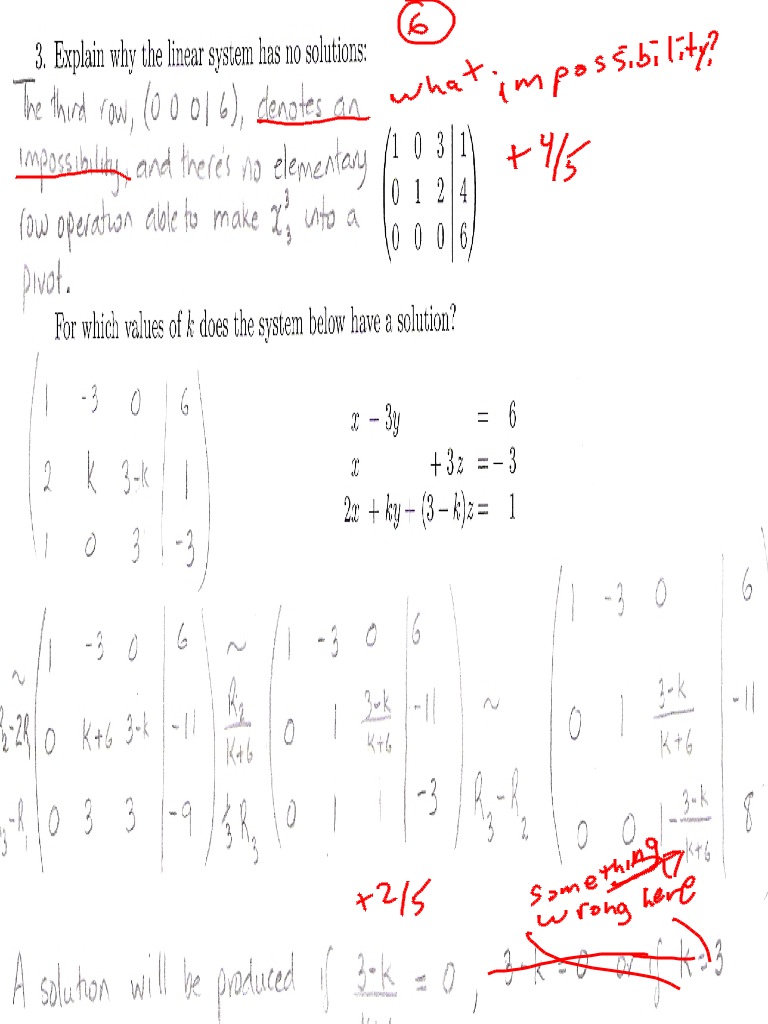 6
3. Explain why the linear system has no solutions:
what impossibility?
The third row, (0 0 0 | 6), denotes an
impossibility, and there's no elementary
row operation able to make x³₃ into a
pivot.
1 0 3 | 1
0 1 2 | 4
0 0 0 | 6
+4/5
For which values of k does the system below have a solution?
1 -3 0 | 6
2 k 3-k | 1
1 0 3 | -3
x - 3y = 6
x + 3z = -3
2x + ky + (3 - k)z = 1
~ 1 -3 0 | 6
R₂-2R₁ 0 k+6 3-k | -11
R₃-R₁ 0 3 3 | -9
~ 1 -3 0 | 6
R₂/k+6 0 1 3-k/k+6 | -11
1/3 R₃ 0 1 1 | -3
~ 1 -3 0 | 6
0 1 3-k/k+6 | -11
R₃-R₂ 0 0 1-3-k/k+6 | 8
+2/5
something
wrong here
A solution will be produced if 3-k/k+6 = 0, 3-k=0 or if k=3